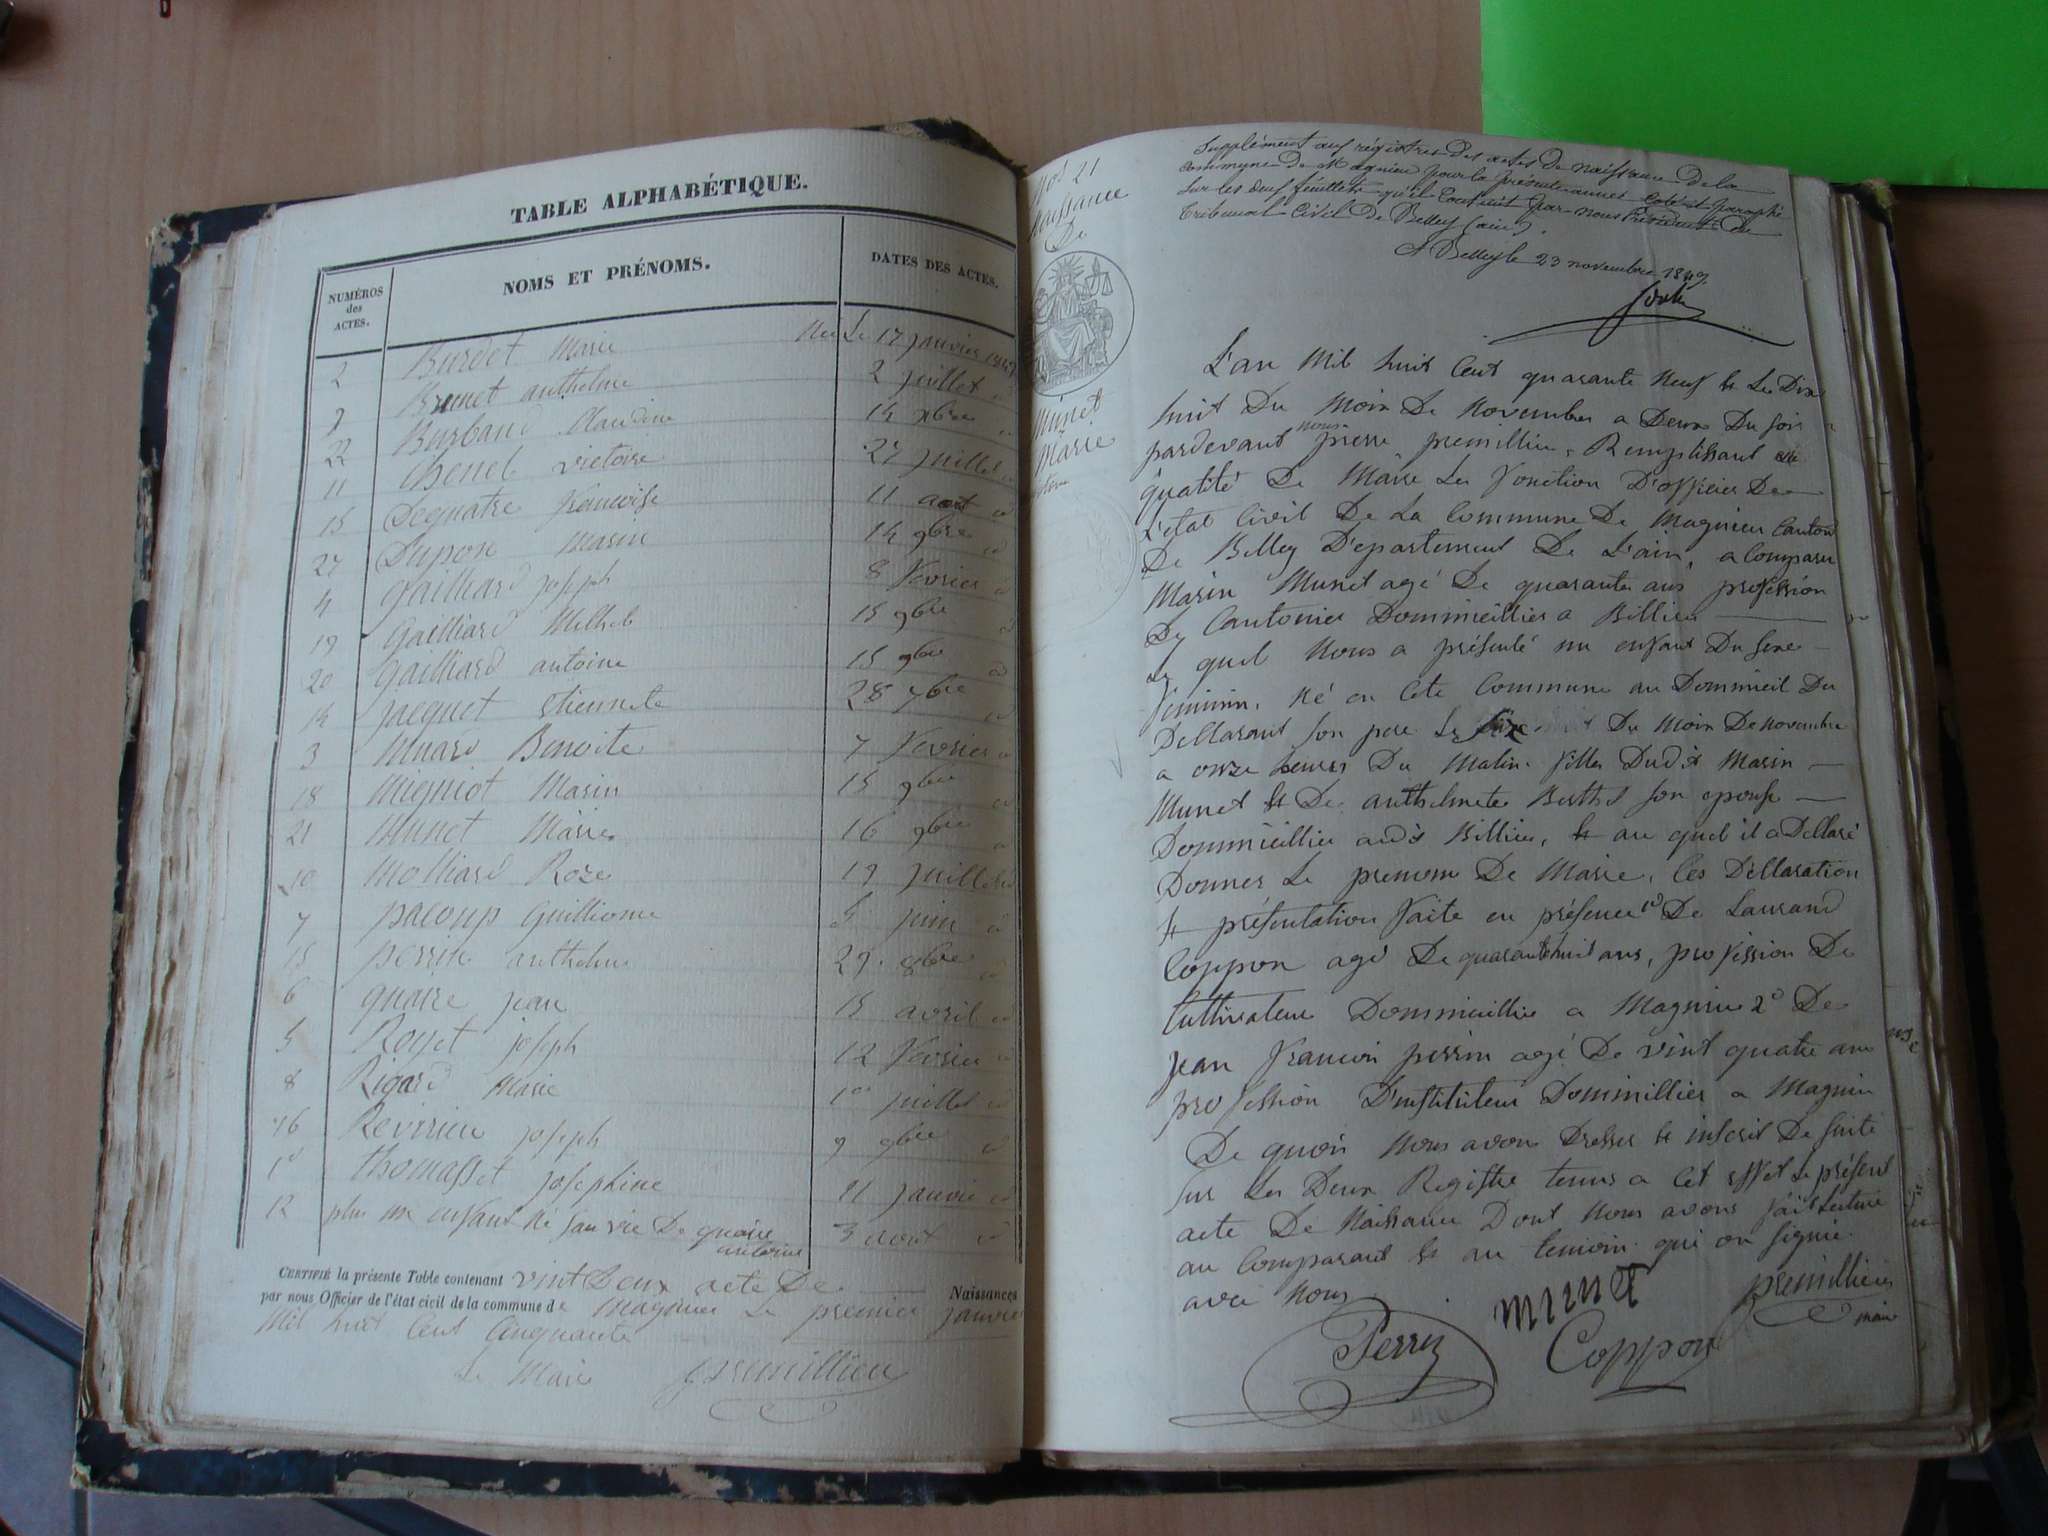 TABLE ALPHABÉTIQUE.
NUMÉROS des ACTES.
NOMS ET PRÉNOMS.
DATES DES ACTES.
2 Burdet Marie Née Le 17 janvier 1849
9 Brunet anthelme 2 juillet id
22 Burband Claudine 14 xbre id
11 Chenel victoire 27 juillet id
13 Dequatre francoise 11 aout id
27 Dupon Marin 14 9bre id
4 gailliard joseph 8 fevrier id
19 Gailliard Michel 15 9bre id
20 gailliard antoine 15 9bre id
14 jacquet Etiennete 28 7bre id
3 Muard Benoite 7 fevrier id
18 Migniot Marin 15 9bre id
21 Munet Marie 16 9bre id
10 Molliard Roze 19 juillet id
7 pacoup Guilliome 5 juin id
15 perrin anthelme 29 8bre id
6 quaire jean 15 avril id
5 Royet joseph 12 fevrier id
8 Rigard Marie 1er juillet id
16 Revirieu joseph 9 9bre id
1er thomasset josephine 11 janvie id
12 plus un enfant né san vie De quaire antoine 3 aout id
CERTIFIÉ la présente Table contenant vint Deux acte De Naissances
par nous Officier de l'état civil de la commune de Magnieu Le premier janvier
Mil huit Cent Cinquante
Le Maire premillieu
Nos 21
Naissance
De
Munet
Marie
Supplément aux régistres des actes de naissance de la
commune de Magnieu pour la présente année coté et paraphé
sur les deux feuillets qu'il contient par nous Président du
tribunal Civil De Belley (ain).
A Belley le 23 novembre 1849
L'an Mil huit Cent quarante Neuf et Le Dix
huit Du Moin De Novembre a Deux Du soir
pardevant nous pierre premillieu, Remplissant en
qualité De Maire Les fonction D'officier De
L'etat Civil De La Commune De Magnieu Canton
De Belley D'epartement De L'ain, a Comparu
Marin Munet agé De quarante ans profession
De Cantonier Dommicillier a Billieu
Le quel Nous a présenté un enfant Du sexe
féminin, Né en Cete Commune au Dommicil Du
Dellarant son pere Le seize Du Moin De Novembre
a onze heures Du Matin. fille Dudit Marin
Munet et De anthelmete Berthet son epouse
Dommicillier audit Billieu, et au quel il a Dellaré
Donner Le prenom De Marie, Ces Dellaration
et présentation faite en présence 1º De Laurand
Coppon agé De quarante huit ans, profession De
Cultivateur Dommicillie a Magnieu 2º De
jean francoin perrin agé De vint quatre ans
profession D'instituteur Dommillier a Magnieu
De quoin Nous avons Dresser et inscrit De suite
sur Les Deux Registre tenus a Cet effet Le présent
acte De Naissance Dont Nous avons fait Lecture
au Comparant et au temoin qui on signié
avec Nous
munet
premillieu
maire
Perrin
Coppon